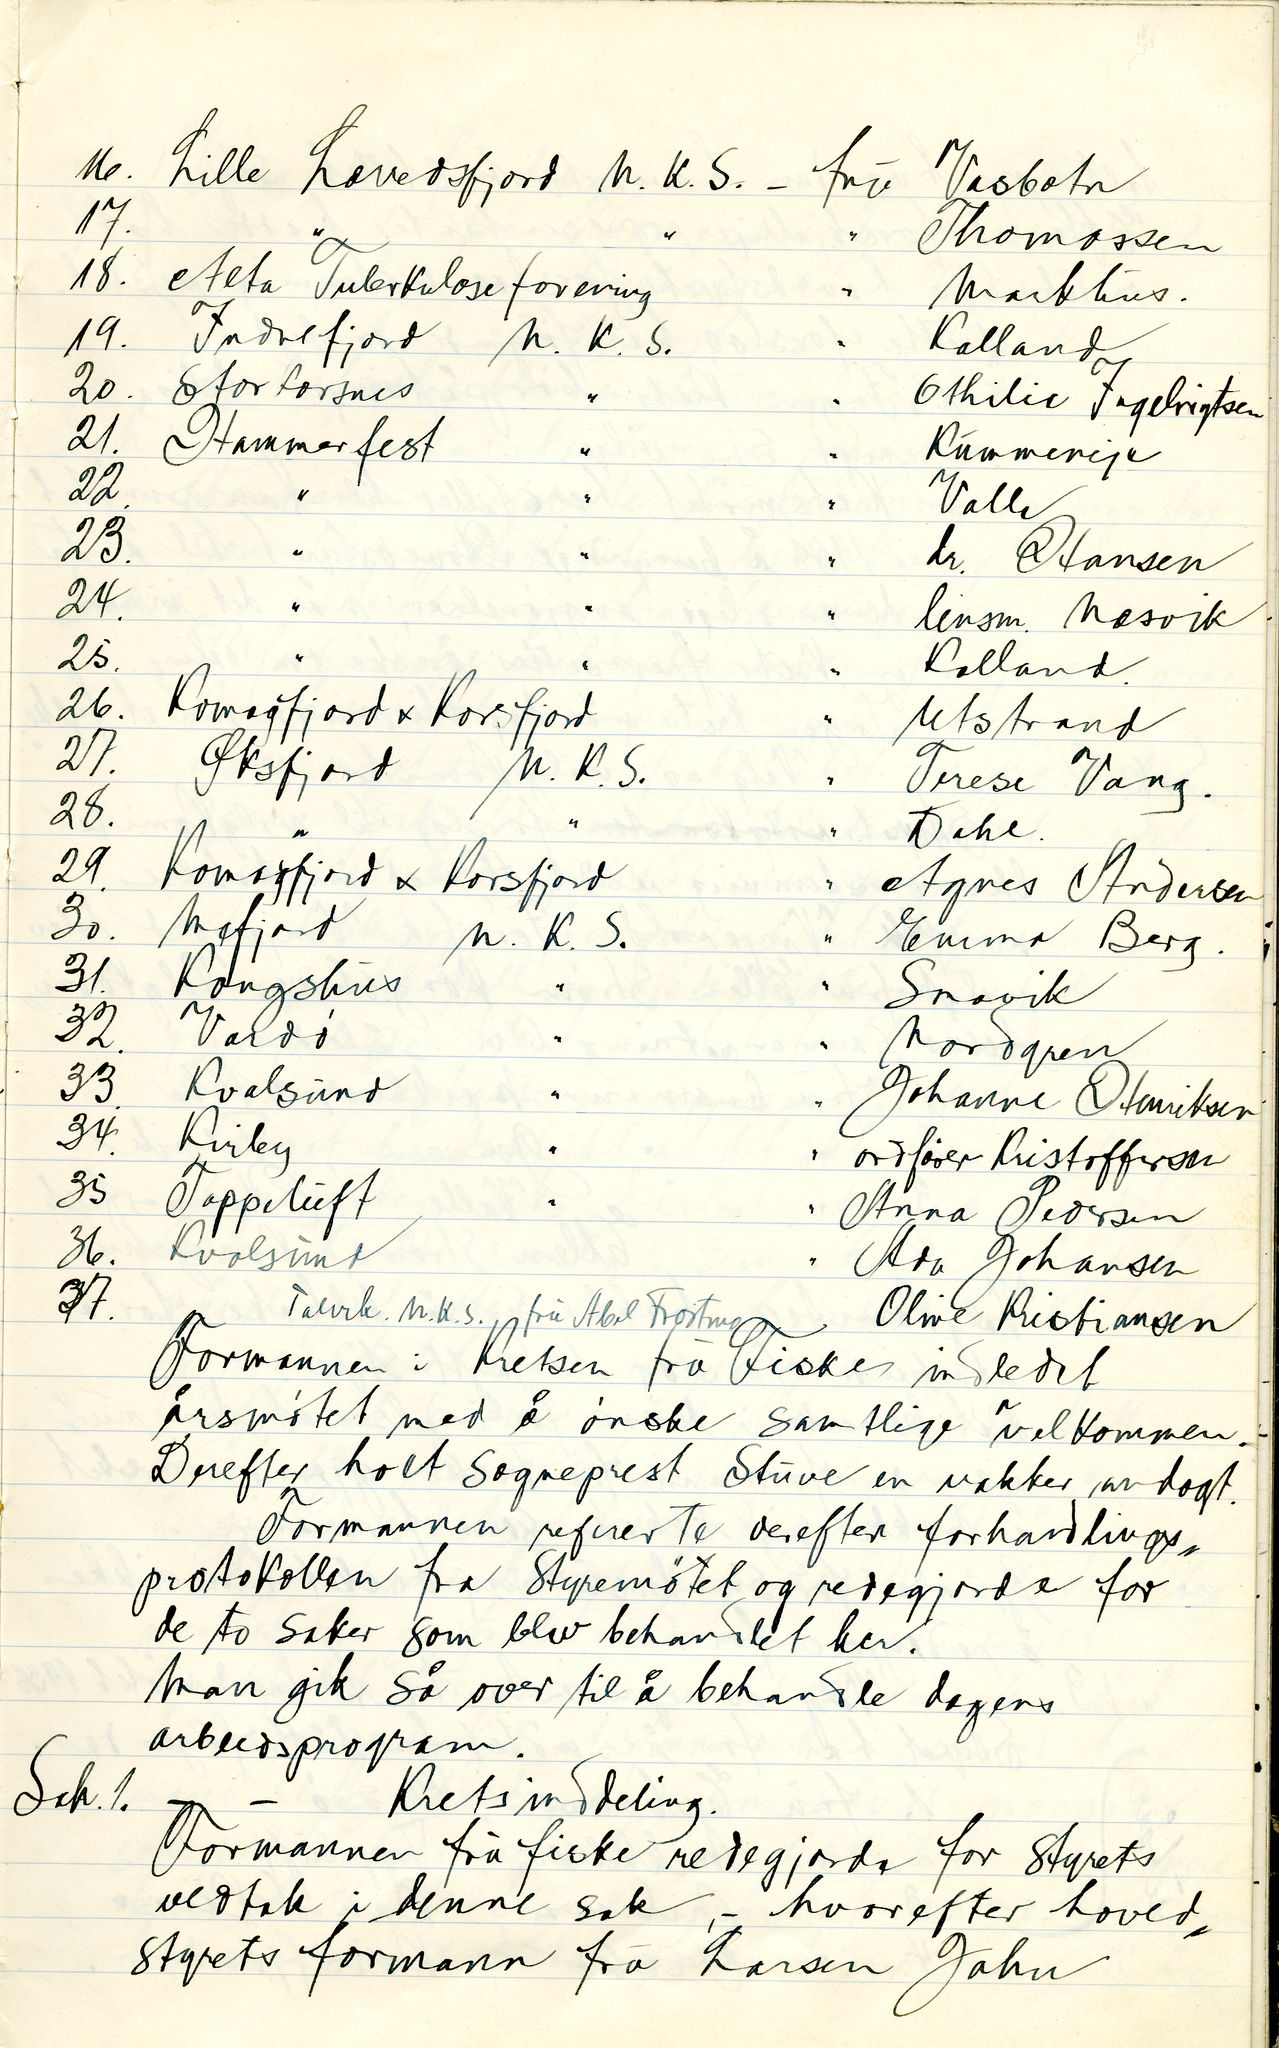 16. Lille Lævedsfjord N.K.S. - frú Vasbotn
17. " " " Thomassen
18. Alta Tuberkuloseforening " Markhus.
19. Indrefjord N.K.S. " Kolland
20. Storkorsnes " " Othilie Ingebrigtsen
21. Hammerfest " " Kummeneje
22. " " " Valle
23. " " " dr. Hansen
24. " " " lensm. Næsvik
25. " " " Kolland.
26. Komagfjord & Korsfjord " Utstrand
27. Øksfjord N.K.S. " Terese Vang.
28. " " " Dahl.
29. Komagfjord & Korsfjord " Agnes Andersen
30. Mafjord N.K.S. " Emma Berg.
31. Kongshus " " Smavik
32. Vardö " " Nordgren
33. Kvalsund " " Johanne Henriksen
34. Kviby " " ordfører Kristoffersen
35 Toppeluft " " Anna Pedersen
36. Kvalsund " Ada Johansen
37. Talvik. N.K.S. frú Abel Frostmo Olive Kristiansen
Formannen i Kretsen frú Fiske indledet
årsmötet med å önske samtlige velkommen.
Derefter holt sogneprest Stúve en vakker andagt.
Formannen refererte derefter forhandlings„
protokollen fra styremötet og redegjorde for
de to saker som blev behandlet her.
Man gik så over til å behandle dagens
arbeidsprogram.
Sak. 1. - - Kretsinddeling.
Formannen frú fiske redegjorde for styrets
vedtak i denne sak, - hvorefter hoved„
styrets formann frú Larsen Jahn